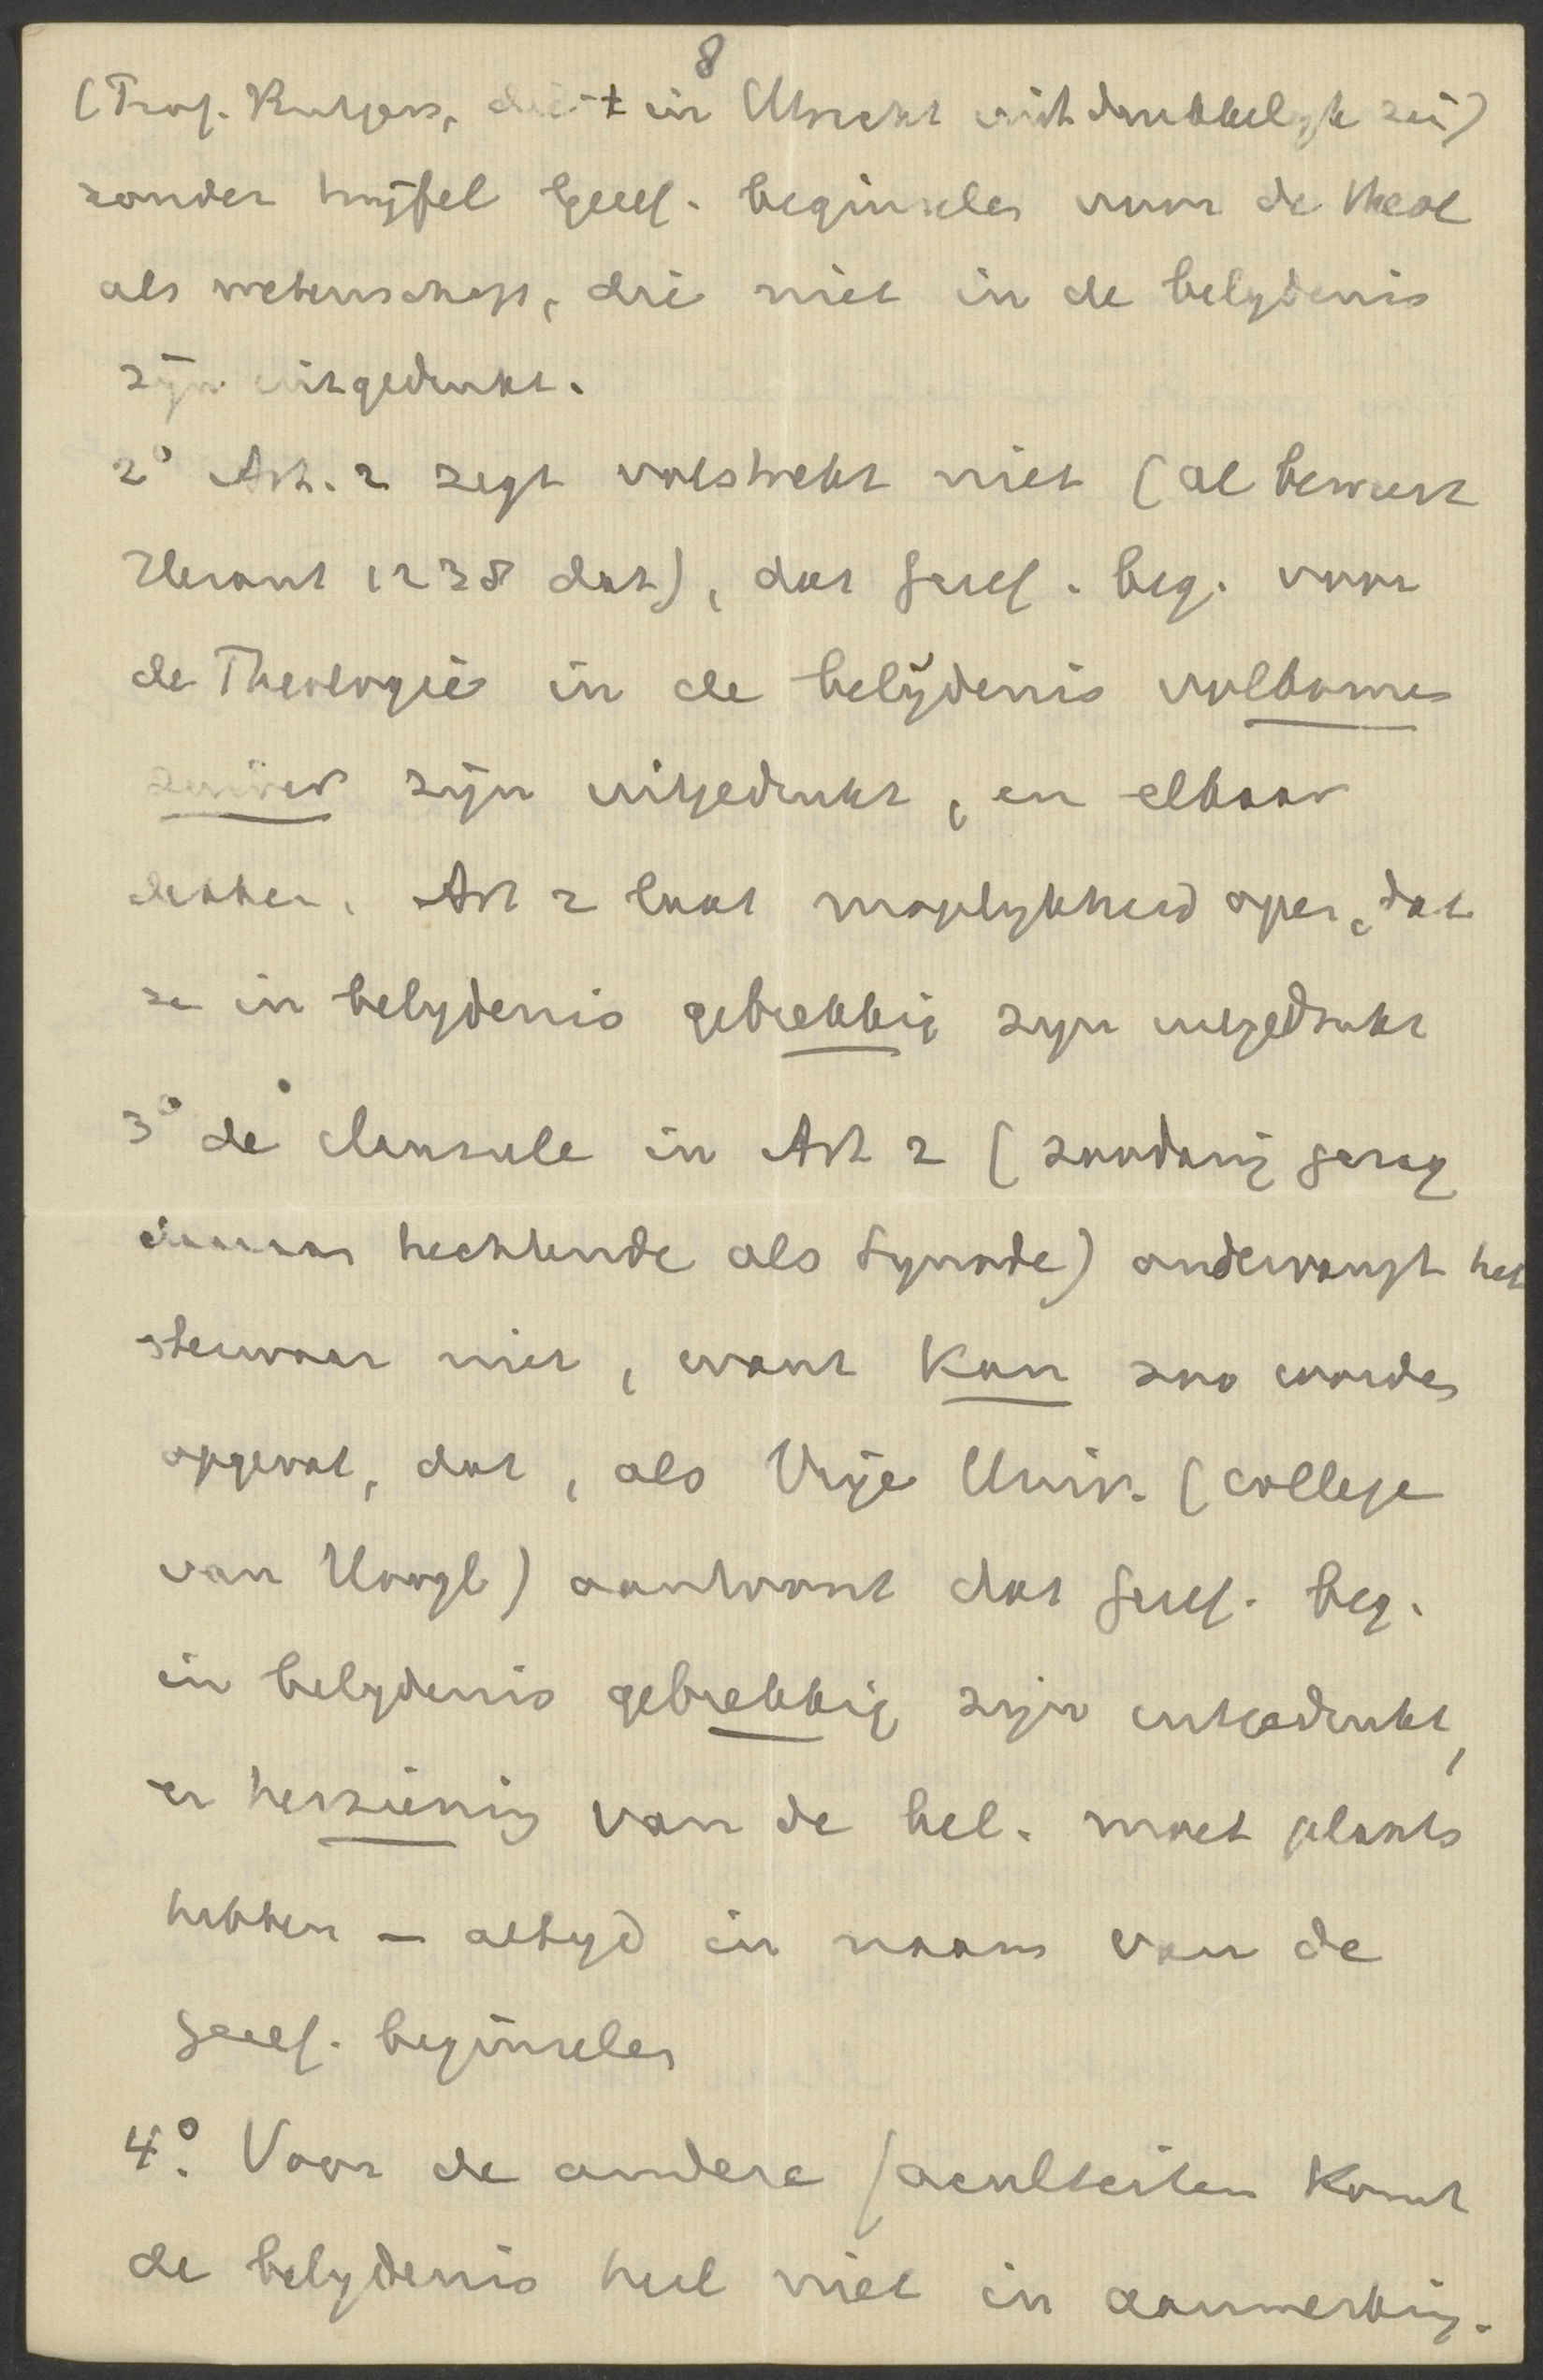 8
(Prof. Rutgers, die 't in Utrecht uitdrukkelijk zei)
zonder twijfel Geref. beginselen voor de theol
als wetenschap, die niet in de belydenis
zijn uitgedrukt.
2° Art. 2 zegt volstrekt niet (al beweert
Heraut 1238 dat), dat Geref. beg. voor
de Theologie in de belijdenis volkomen
zuiver zijn uitgedrukt, en elkaar
dekken. Art 2 laat mogelykheid open, dat
ze in belydenis gebrekkig zyn uitgedrukt
3° de clausule in Art 2 (zoodanig gezag
daaraan hechtende als Synode) ondervangt het
bezwaar niet, want kan zoo worden
opgevat, dat, als Vrije Univ. (college
van Hoogl) aantoont dat Geref. beg.
in belydenis gebrekkig zijn uitgedrukt,
er herziening van de bel. moet plaats
hebben – altyd in naam van de
Geref. beginselen
4° Voor de andere faculteiten komt
de belydenis heel niet in aanmerking.